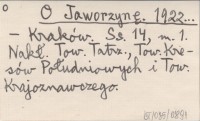 O Jaworzynę. 1922...
— Kraków. Ss. 14, m. 1.
Nakł. Tow. Tatrz., Tow. Kre-
sów Południowych i Tow.
Krajoznawczego.